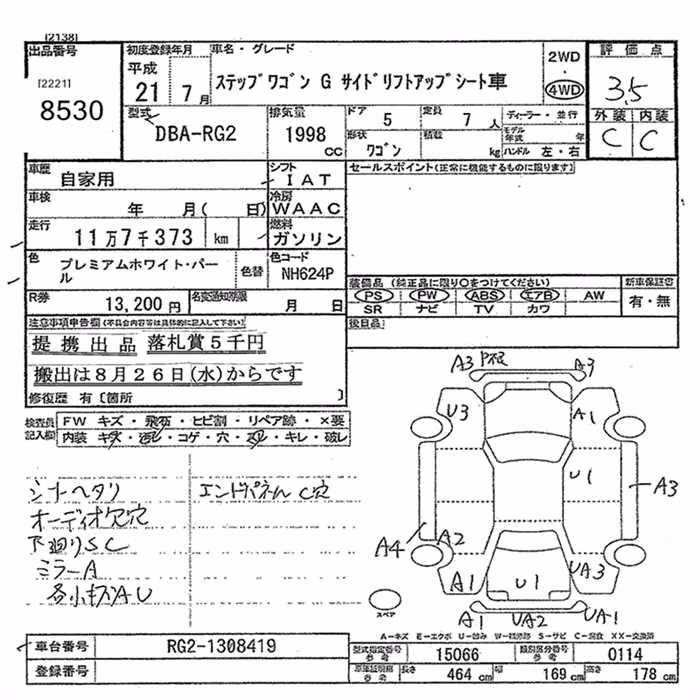 [2138]
出品番号
[2221]
8530
初度登録年月
平成
21 7月
車名・グレード
ステップワゴン G サイドリフトアップシート車
2WD
・
4WD
評価点
3.5
外装 内装
C C
型式
DBA-RG2
排気量
1998 cc
ドア
5
定員
7人
形状
ワゴン
積載
kg
ディーラー・並行
モデル年式 年
ハンドル 左・右
車歴
自家用
シフト
IAT
車検
年 月( 日)
冷房
WAAC
走行
11万7千373 km
燃料
ガソリン
色
プレミアムホワイト・パール
色替
色コード
NH624P
R券
13,200円
名変通知期限
月 日
セールスポイント(正常に機能するものに限ります)
装備品 (純正品に限り○をつけてください)
PS PW ABS エアB AW
SR ナビ TV カワ
新車保証書
有・無
後日品
注意事項申告欄(不具合内容等は具体的に記入して下さい)
提携出品 落札賞5千円
搬出は8月26日(水)からです
修復歴 有〔箇所 〕
検査員記入欄
FW キズ・飛石・ヒビ割・リペア跡・×要
内装 キズ・汚レ・コゲ・穴・スレ・キレ・破レ
シートヘタリ
オーディオ欠穴
下廻りSC
ミラーA
各小キズAU
エンドパネルC穴
A3 A3
U3 A1
U1
A3
A4 A2
A1 U1 UA3
A1 UA2 UA1
スペア
A-キズ E-エクボ U-凹み W-補修跡 S-サビ C-腐食 XX-交換済
車台番号
RG2-1308419
登録番号
型式指定番号 参考
15066
類別区分番号 参考
0114
車庫証明用 参考
長さ 464 cm
幅 169 cm
高さ 178 cm